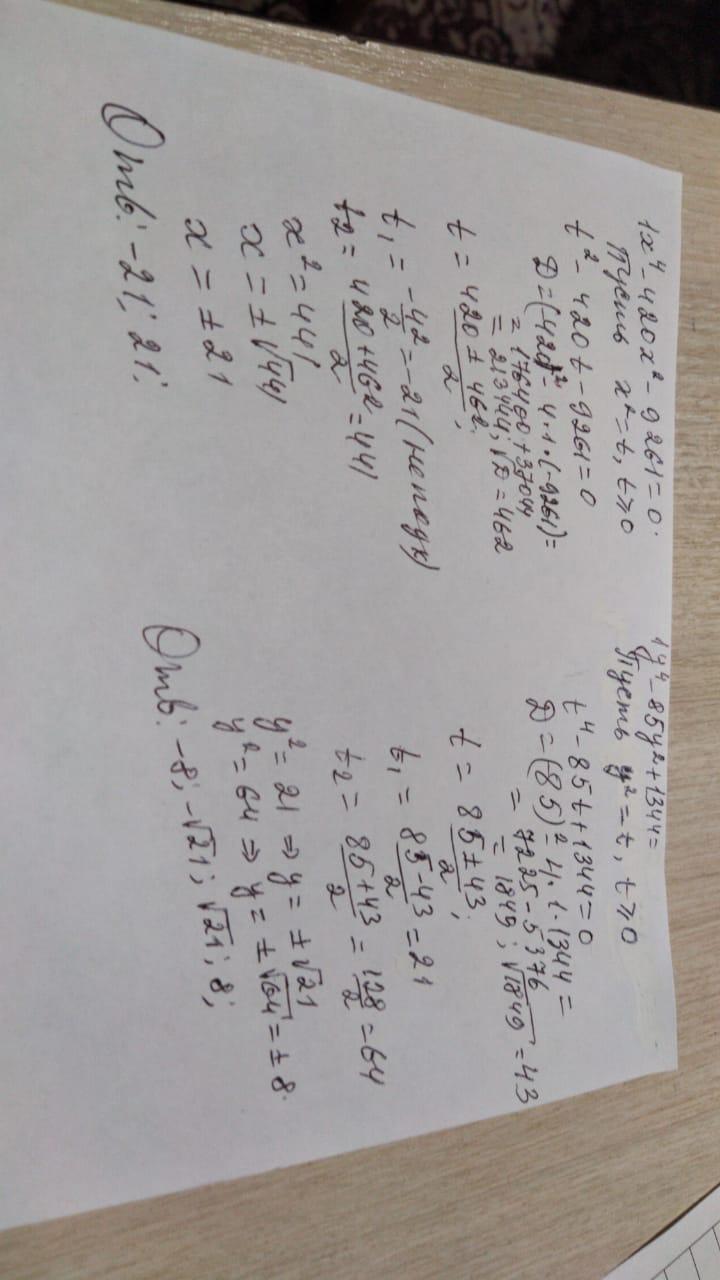 1x⁴ - 420x² - 9261 = 0.
Пусть x² = t, t ⩾ 0
t² - 420t - 9261 = 0
D = (-420)² - 4·1·(-9261) =
= 176400 + 37044
= 213444; √D = 462
t = (420 ± 462)/2;
t₁ = -42/2 = -21 (неподх)
t₂ = (420 + 462)/2 = 441
x² = 441
x = ±√441
x = ±21
Отв: -21; 21.
1y⁴ - 85y² + 1344 =
Пусть y² = t, t ⩾ 0
t⁴ - 85t + 1344 = 0
D = (85)² - 4·1·1344 =
= 7225 - 5376
= 1849; √1849 = 43
t = (85 ± 43)/2;
t₁ = (85 - 43)/2 = 21
t₂ = (85 + 43)/2 = 128/2 = 64
y² = 21 ⇒ y = ±√21
y² = 64 ⇒ y = ±√64 = ±8.
Отв: -8; -√21; √21; 8;